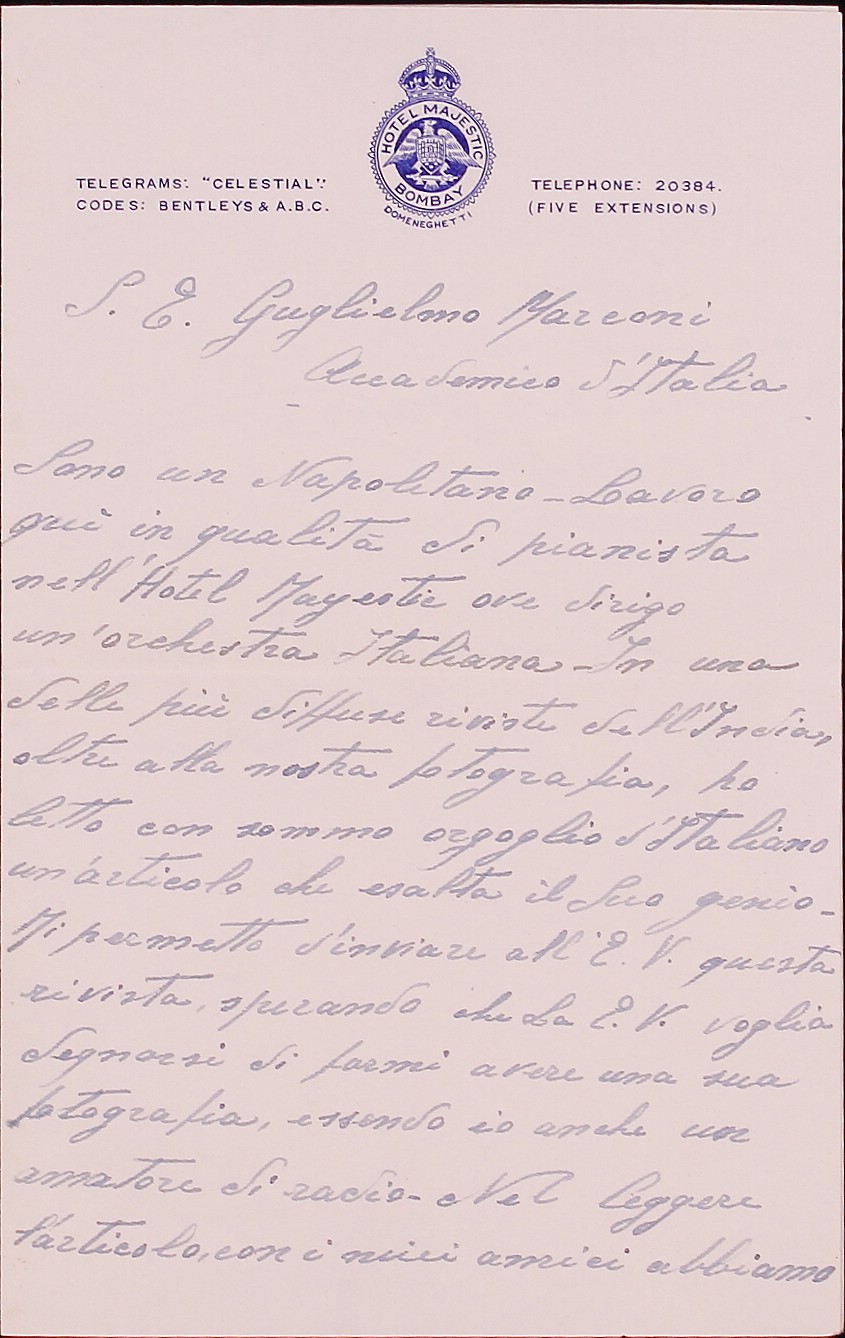 HOTEL MAJESTIC
BOMBAY
DOMENEGHETTI
TELEGRAMS: "CELESTIAL".
CODES: BENTLEYS & A.B.C.
TELEPHONE: 20384.
(FIVE EXTENSIONS)
S. E. Guglielmo Marconi
Accademico d'Italia
Sono un Napoletano - Lavoro
quì in qualità di pianista
nell'Hotel Mayestic ove dirigo
un'orchestra Italiana - In una
delle più diffuse riviste dell'India,
oltre alla nostra fotografia, ho
letto con sommo orgoglio d'Italiano
un'articolo che esalta il Suo genio -
Mi permetto d'inviare all'E. V. questa
rivista, sperando che La E. V. voglia
degnarsi di farmi avere una sua
fotografia, essendo io anche un
amatore di radio - Nel leggere
l'articolo, con i miei amici abbiamo